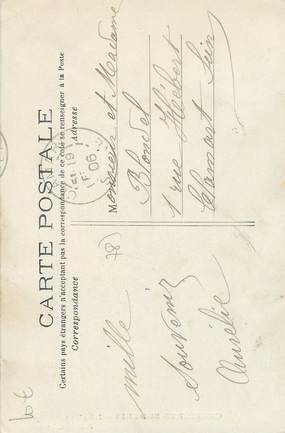 CARTE POSTALE
Certains pays étrangers n'acceptant pas la correspondance de ce côté se renseigner à la Poste
Correspondance
Adresse
mille
souvenirs
Aurélie
Monsieur et Madame
Blondel
1 rue Hébert
Clamart Seine
(78)
19
06